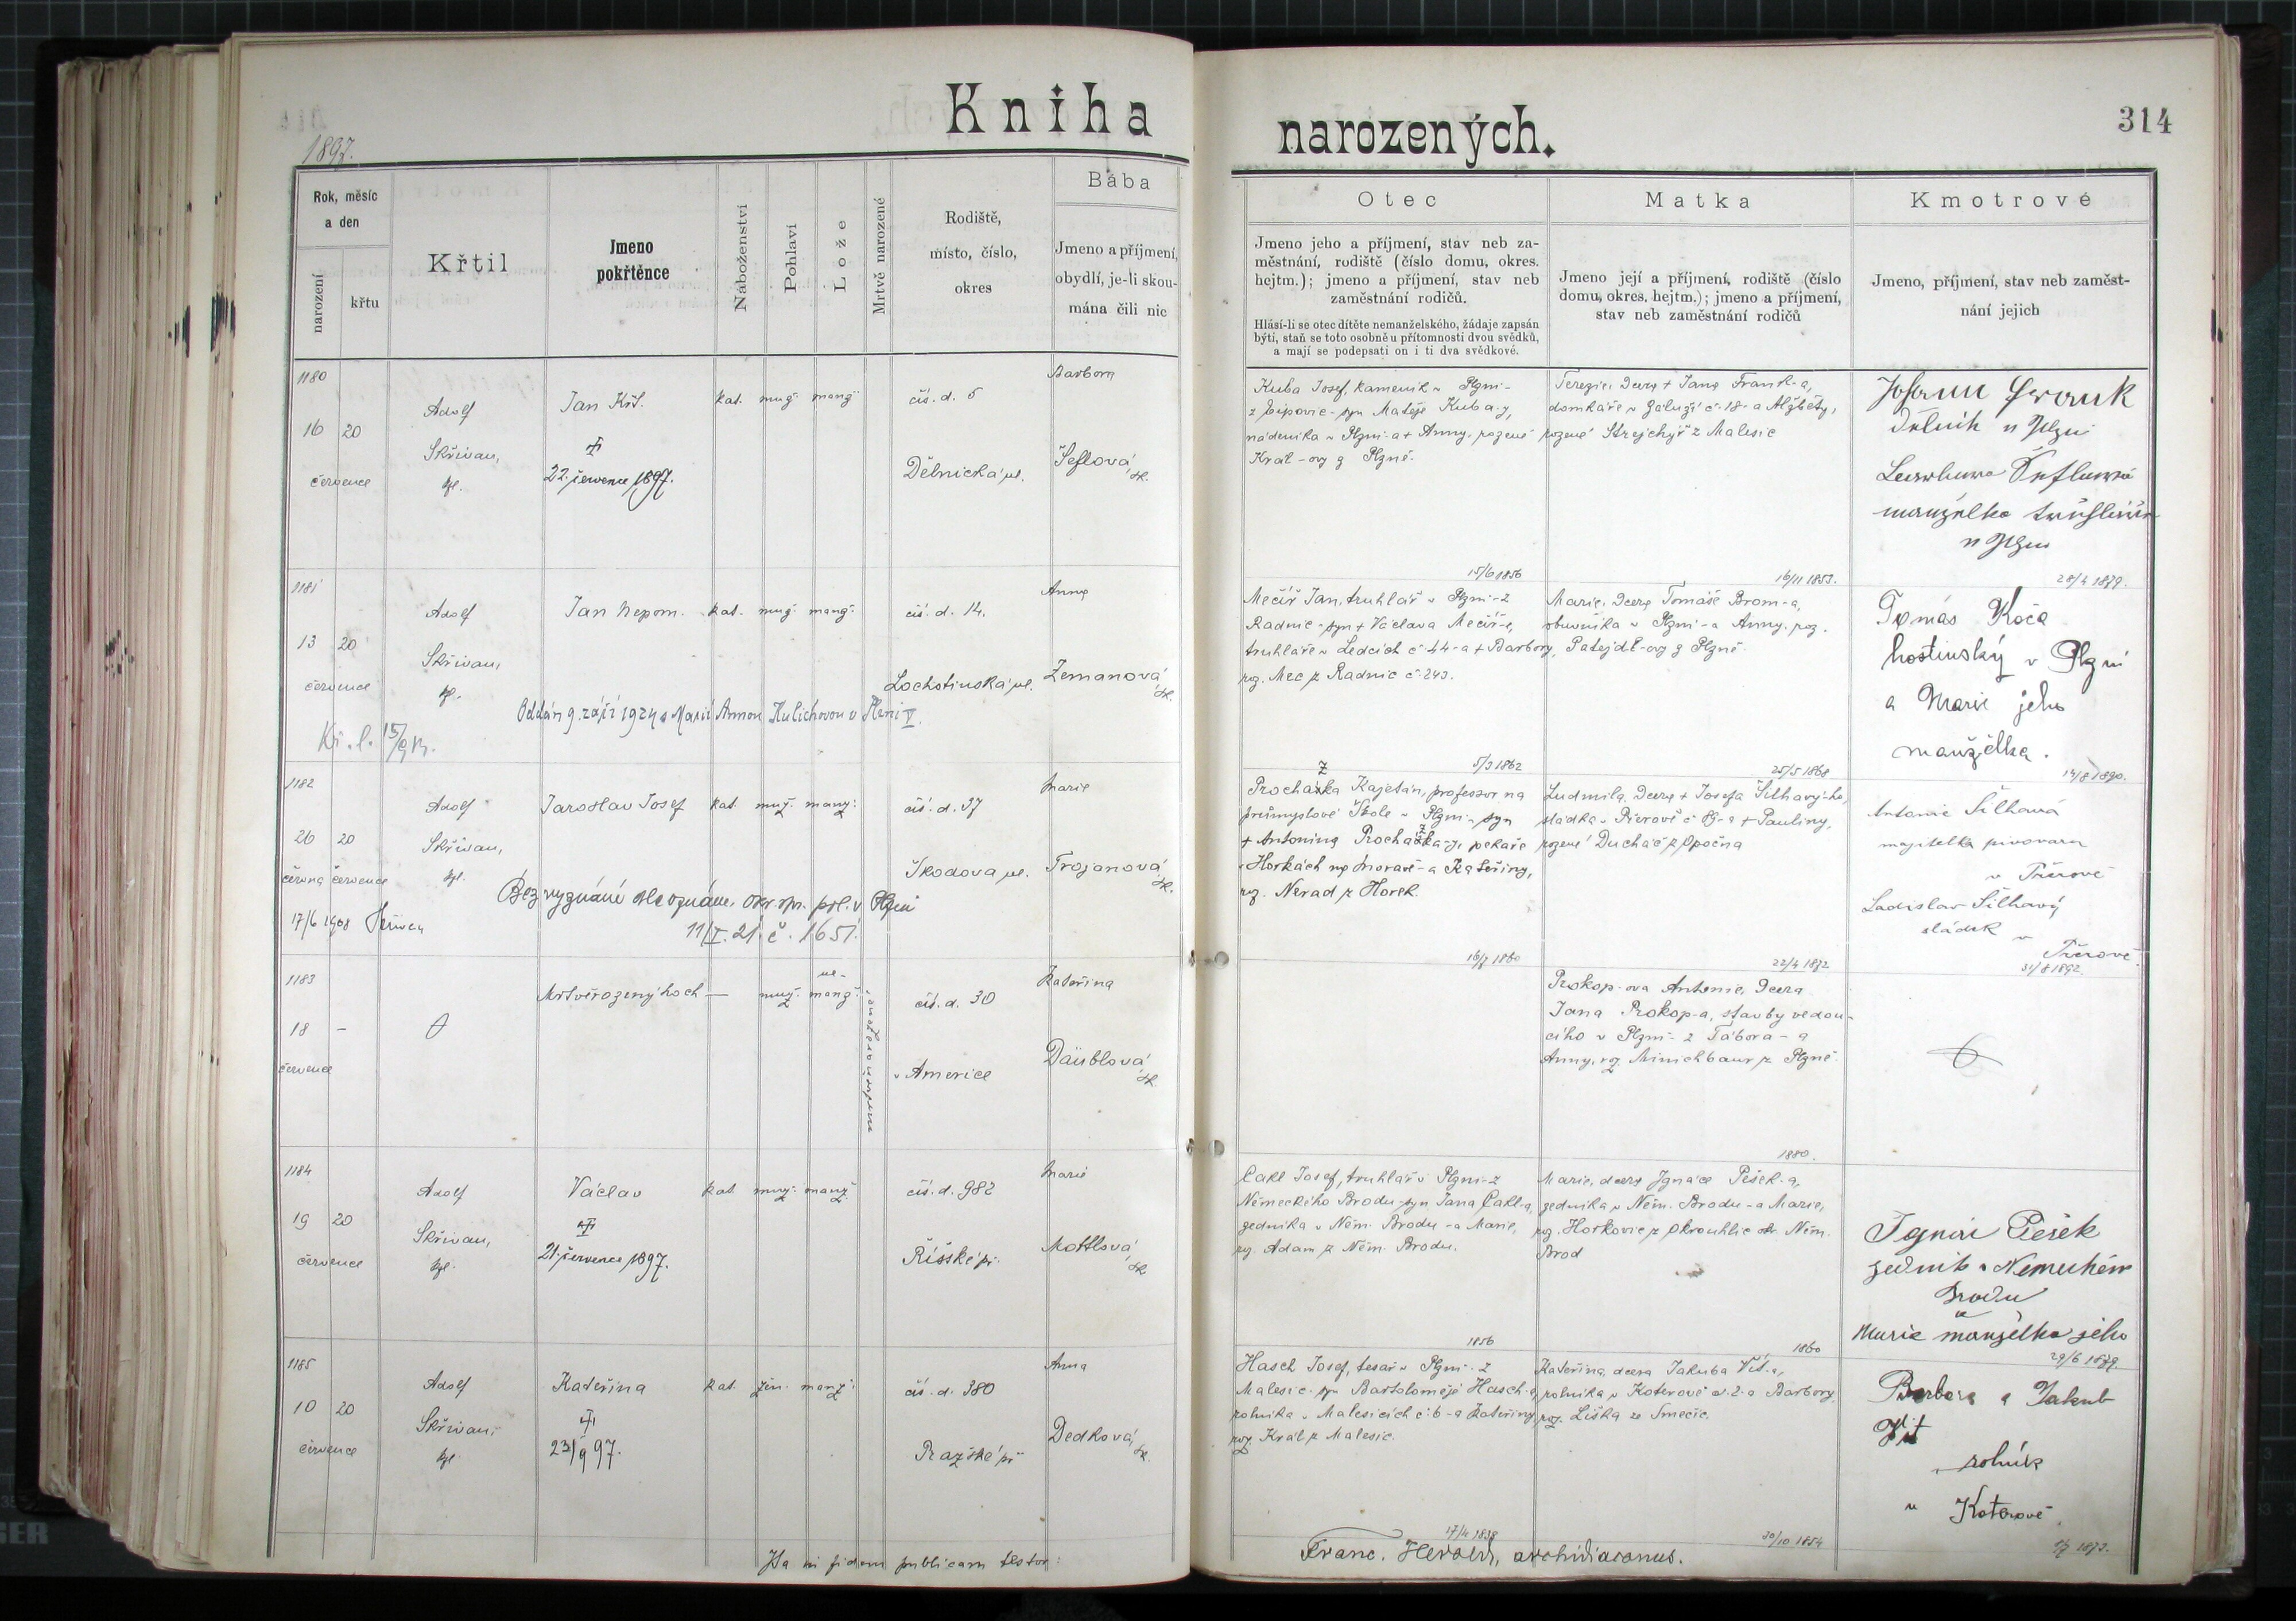 Kniha narozených.
314
1897.
Rok, měsíc
a den
narození
křtu
Křtil
Jmeno
pokřtěnce
Náboženství
Pohlaví
Lože
Mrtvě narozené
Rodiště,
místo, číslo,
okres
Bába
Jmeno a příjmení,
obydlí, je-li skou-
mána čili nic
Otec
Jmeno jeho a příjmení, stav neb za-
městnání, rodiště (číslo domu, okres.
hejtm.); jmeno a příjmení, stav neb
zaměstnání rodičů.
Hlásí-li se otec dítěte nemanželského, žádaje zapsán
býti, staň se toto osobně u přítomnosti dvou svědků,
a mají se podepsati on i ti dva svědkové.
Matka
Jmeno její a příjmení, rodiště (číslo
domu, okres. hejtm.); jmeno a příjmení,
stav neb zaměstnání rodičů
Kmotrové
Jmeno, příjmení, stav neb zaměst-
nání jejich
1180
16 20
července
Adolf
Skřivan,
kpl.
Jan Křt.
22. července 1897.
kat. muž. manž.
čís. d. 5
Dělnická ul.
Barbora
Šeflová,
zk.
Kuba Josef, kameník v Plzni -
z Lipovic - syn Matěje Kuba-y,
nádeníka v Plzni - a + Anny, rozené
Král-ovy z Plzně.
15/6 1856
Terezie, dcera + Jana Frank-a,
domkáře v Záluží č. 18 - a Alžběty,
rozené Strejchýř z Malesic
16/11 1853.
Johann Frank
dělník v Plzni
Barbora Šeflová
manželka truhláře
v Plzni
28/4 1879.
1181
13 20
července
Adolf
Skřivan,
kpl.
Jan Nepom.
kat. muž. manž.
čís. d. 14.
Lochotínská ul.
Anna
Zemanová,
zk.
Oddán 9. září 1924 s Marií Annou Kulichovou v Plzni V.
Kř. l. 15/9 13.
Mečíř Jan, truhlář v Plzni - z
Radnic - syn + Václava Mečíř-e,
truhláře v Ledcích č. 44 - a + Barbory,
roz. Mec z Radnic č. 243.
5/3 1862
Marie, dcera Tomáše Brom-a,
obuvníka v Plzni - a Anny, roz.
Patejdl-ovy z Plzně.
25/5 1868
Tomás Koča
hostinský v Plzni
a Marie jeho
manželka.
14/8 1890.
1182
26 20
června července
Adolf
Skřivan,
kpl.
Jaroslav Josef
kat. muž. manž.
čís. d. 37
Škodova ul.
Marie
Trojanová,
zk.
17/6 1908
Bez vyznání dle oznám. okr. spr. pol. v Plzni
11/I. 21. č. 1651.
Procházka Kajetán, professor na
průmyslové škole v Plzni, syn
+ Antonína Procházka-y, pekaře
v Horkách na Moravě - a Kateřiny,
roz. Nerad z Horek.
16/7 1860
Ludmila, dcera + Josefa Šilhavý-ho,
sládka v Přerově č. 89 - a + Pauliny,
rozené Ducháč z Opočna
22/4 1872
Antonie Šilhavá
majitelka pivovaru
v Přerově
Ladislav Šilhavý
sládek
v Přerově
31/8 1892.
1183
18 -
července
Mrtvěrozený hoch
— muž. ne-
manž.
mrtvě narozené
čís. d. 30
v Americe
Kateřina
Däublová,
zk.
Prokop-ova Antonie, dcera
Jana Prokop-a, stavby vedou-
cího v Plzni - z Tábora - a
Anny, roz. Minichbaur z Plzně.
1880.
1184
19 20
července
Adolf
Skřivan,
kpl.
Václav
21. července 1897.
kat. muž. manž.
čís. d. 982
Říšské př.
Marie
Mottlová,
zk.
Cakl Josef, truhlář v Plzni - z
Německého Brodu - syn Jana Cakl-a,
zedníka v Něm. Brodu - a Marie,
roz. Adam z Něm. Brodu.
1856
Marie, dcera Ignáce Pešek-a,
zedníka v Něm. Brodu - a Marie,
roz. Horkovic z Okrouhlic okr. Něm.
Brod
1860
Ignác Pešek
zedník v Německém
Brodu
a
Marie manželka jeho
29/6 1879.
1185
10 20
července
Adolf
Skřivan,
kpl.
Kateřina
23/9 97.
kat. žen. manž.
čís. d. 380
Pražské př.
Anna
Dedková,
zk.
Hasch Josef, tesař v Plzni - z
Malesic - syn Bartoloměje Hasch-e,
rolníka v Malesicích č. 6 - a Kateřiny,
roz. Král z Malesic.
17/4 1838
Kateřina, dcera Jakuba Vít-a,
rolníka v Koterově č. 2 - a Barbory,
roz. Liška ze Smečic.
30/10 1854
Barbora a Jakub
Vít
rolník
v Koterově
1873.
Ita in fidem publicam testor:
Franc. Herold, archidiaconus.